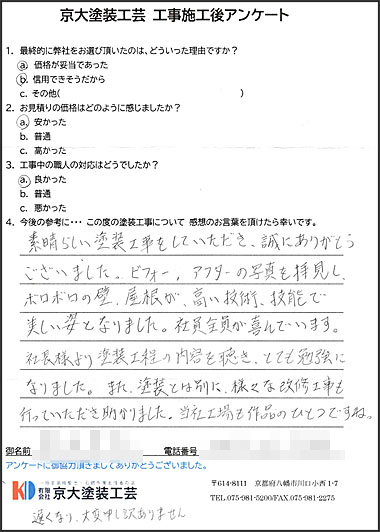 京大塗装工芸 工事施工後アンケート
1. 最終的に弊社をお選び頂いたのは、どういった理由ですか？
a. 価格が妥当であった
b. 信用できそうだから
c. その他( )
2. お見積りの価格はどのように感じましたか？
a. 安かった
b. 普通
c. 高かった
3. 工事中の職人の対応はどうでしたか？
a. 良かった
b. 普通
c. 悪かった
4. 今後の参考に・・・ この度の塗装工事について 感想のお言葉を頂けたら幸いです。
素晴らしい塗装工事をしていただき、誠にありがとう
ございました。ビフォー、アフターの写真を拝見し、
ボロボロの壁、屋根が、高い技術、技能で
美しい姿となりました。社員全員が喜んでいます。
社長様より塗装工程の内容を聴き、とても勉強に
なりました。また、塗装とは別に、様々な改修工事も
行っていただき助かりました。当社工場も作品のひとつですね。
御名前 電話番号
アンケートに御協力頂きましてありがとうございました。
KD 有限会社 京大塗装工芸
〒614-8111 京都府八幡市川口小西1-7
TEL.075-981-5200/FAX.075-981-2275
遅くなり、大変申し訳ありません